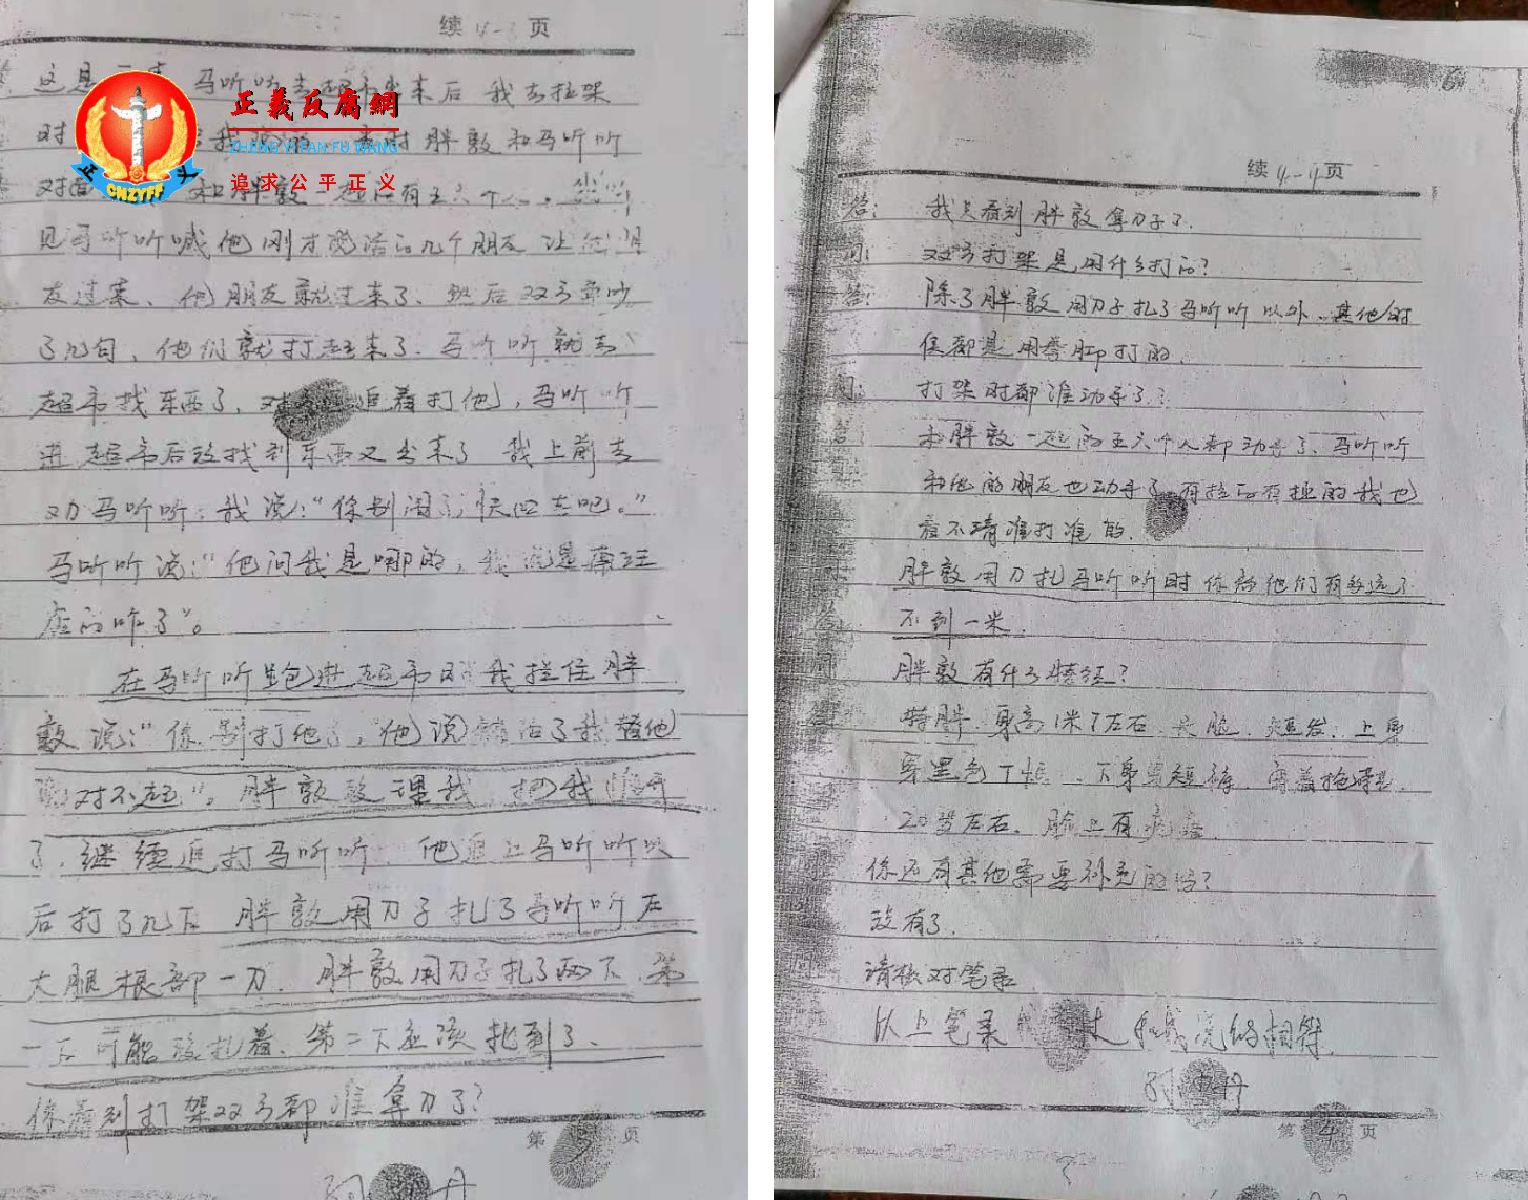 续4-3页
这是 马听听去超市出来后 我去拉架
时 我 当时胖敦和马听听
对 和胖敦一起的有五六个人。
见马听听喊他刚才说话的几个朋友让他朋
友过来、他朋友就过来了、然后双方争吵
了几句、他们就打起来了.马听听就去
超市找东西了、对 追着打他，马听听
进超市后没找到东西又出来了 我上前去
劝马听听：我说："你别闹了，快回去吧。"
马听听说："他问我是哪的，我说是南汪
店的咋了"。
在马听听跑进超市时我拦住胖
敦说："你别打他了，他说错话了我替他
对不起"。胖敦没理我，把我推开
了.继续追打马听听.他追上马听听以
后打了几下 胖敦用刀子扎了马听听左
大腿根部一刀.胖敦用刀子扎了两下.第
一下可能没扎着、第二下应该扎到了、
你看到打架双方都谁拿刀了？
第 页
丹
正義反腐網
ZHENG YI FAN FU WANG
追求公平正义
正 义
CNZYFF
6
续4-4页
答：我只看到胖敦拿刀子了.
问：双方打架是用什么打的？
答：除了胖敦用刀子扎了马听听以外、其他时
候都是用拳脚打的.
问：打架时都谁动手了？
答：和胖敦一起的五六个人都动手了、马听听
和他的朋友也动手了 有拉的有拽的我也
看不清谁打谁的.
胖敦用刀扎马听听时你离他们有多远了
不到一米.
胖敦有什么特征？
特胖.身高1米7左右.长脸、短发、上身
穿黑色T恤、下身 短裤、穿着拖鞋.
20岁左右.脸上有
你还有其他需要补充的吗？
没有了.
请核对笔录
以上笔录 过和我说的相符.
丹
第4页